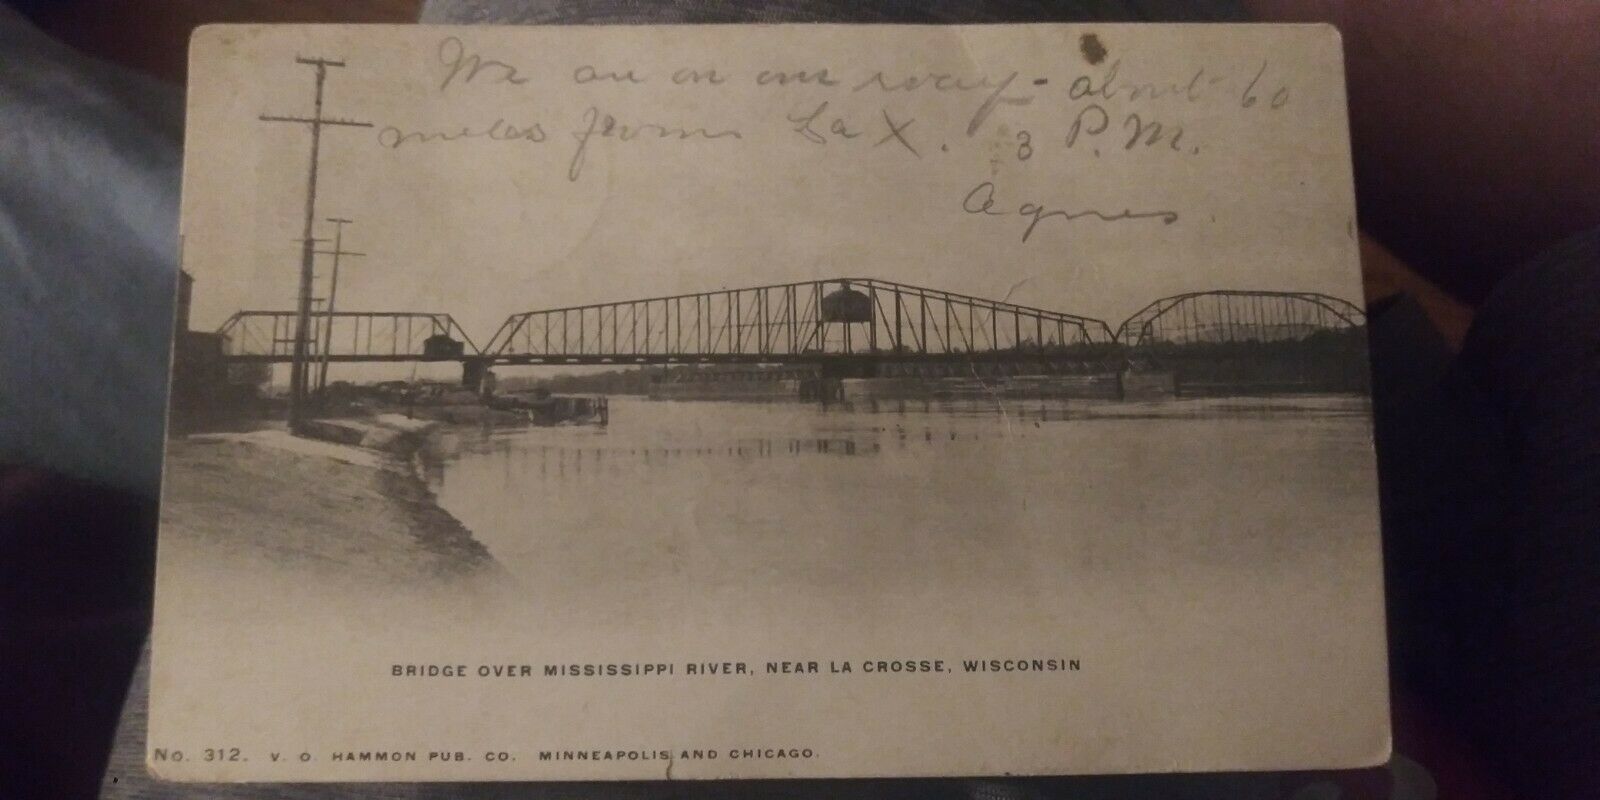 We are on our way - about 60
miles from La X. 3 P.M.
Agnes
BRIDGE OVER MISSISSIPPI RIVER, NEAR LA CROSSE, WISCONSIN
No. 312. V. O. HAMMON PUB. CO. MINNEAPOLIS AND CHICAGO.